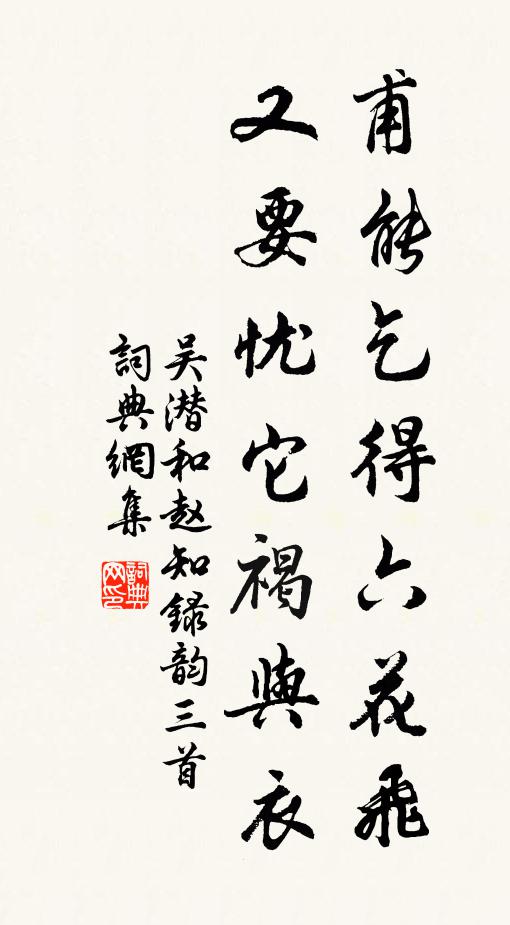 甫能乞得六花飛
又要忧它褐與衣
吴潜和赵知録韵三首
詞典網集
詞典网印